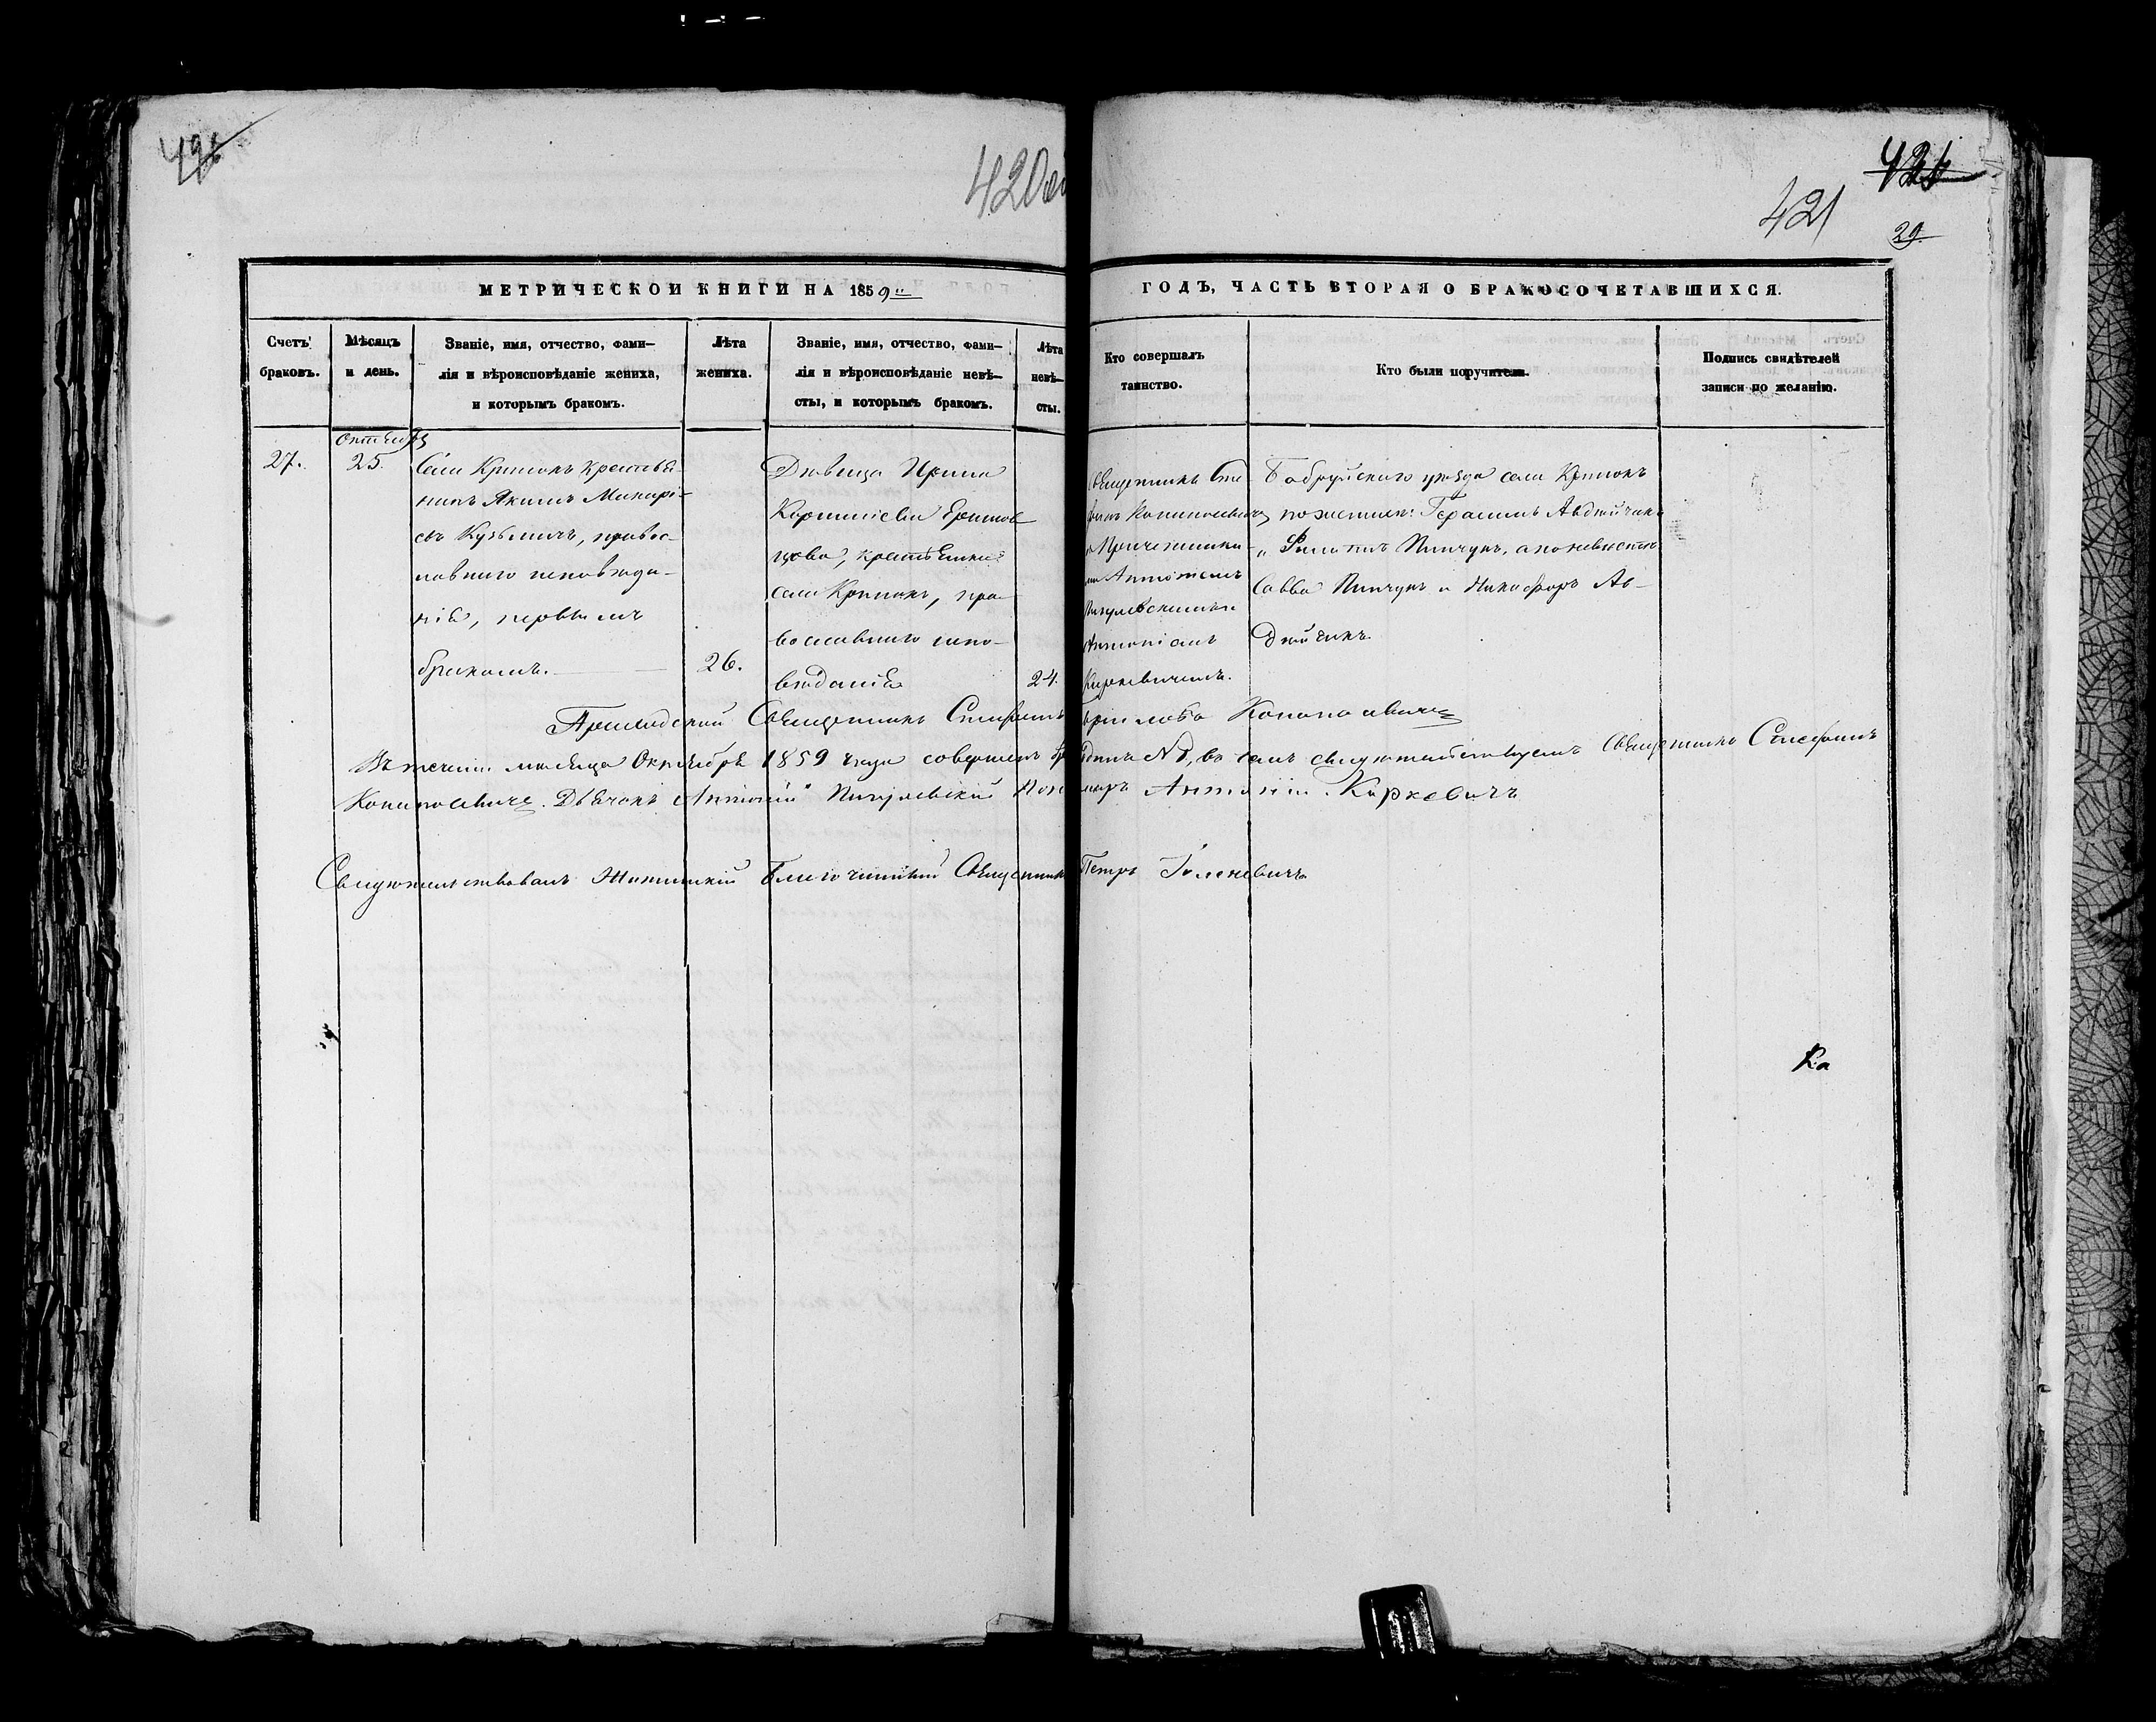 420об
421
29.
МЕТРИЧЕСКОЙ КНИГИ НА 1859 ГОДЪ, ЧАСТЬ ВТОРАЯ О БРАКОСОЧЕТАВШИХСЯ.
Счетъ
браковъ.
Мѣсяцъ
и день.
Званіе, имя, отчество, фами-
лія и вѣроисповѣданіе жениха,
и которымъ бракомъ.
Лѣта
жениха.
Званіе, имя, отчество, фами-
лія и вѣроисповѣданіе невѣ-
сты, и которымъ бракомъ.
Лѣта
невѣ-
сты.
Кто совершалъ
таинство.
Кто были поручители.
Подпись свидѣтелей
записи по желанію.
27.
Октября
25.
Села крестья-
нинъ Якимъ Макарі-
евъ Кузьмичъ, правос-
лавнаго исповѣда-
нія, первымъ
бракомъ.
26.
Дѣвица Ирина
Корниліева
крестьянка
села пра-
вославнаго испо-
вѣданія
24.
Священникъ Сте
фанъ
Причетника-
ми Антоніемъ
Пигулевскимъ и
Антоніемъ
Киркевичемъ.
Бобруйскаго уѣзда села
по женихѣ: Герасимъ Авдѣйчикъ
и Филиппъ Пинчукъ, а по невѣстѣ
Савва Пинчукъ и Никифоръ Ав-
дѣйчикъ.
Приходскій Священникъ Стефанъ
Въ теченіи мѣсяца Октября 1859 года совершенъ бракъ одинъ №1, въ чемъ свидѣтельствуемъ Священникъ Стефанъ
Дьячокъ Антоній Пигулевскій Пономарь Антоній Киркевичъ
Свидѣтельствовалъ Благочинный Священникъ Петръ